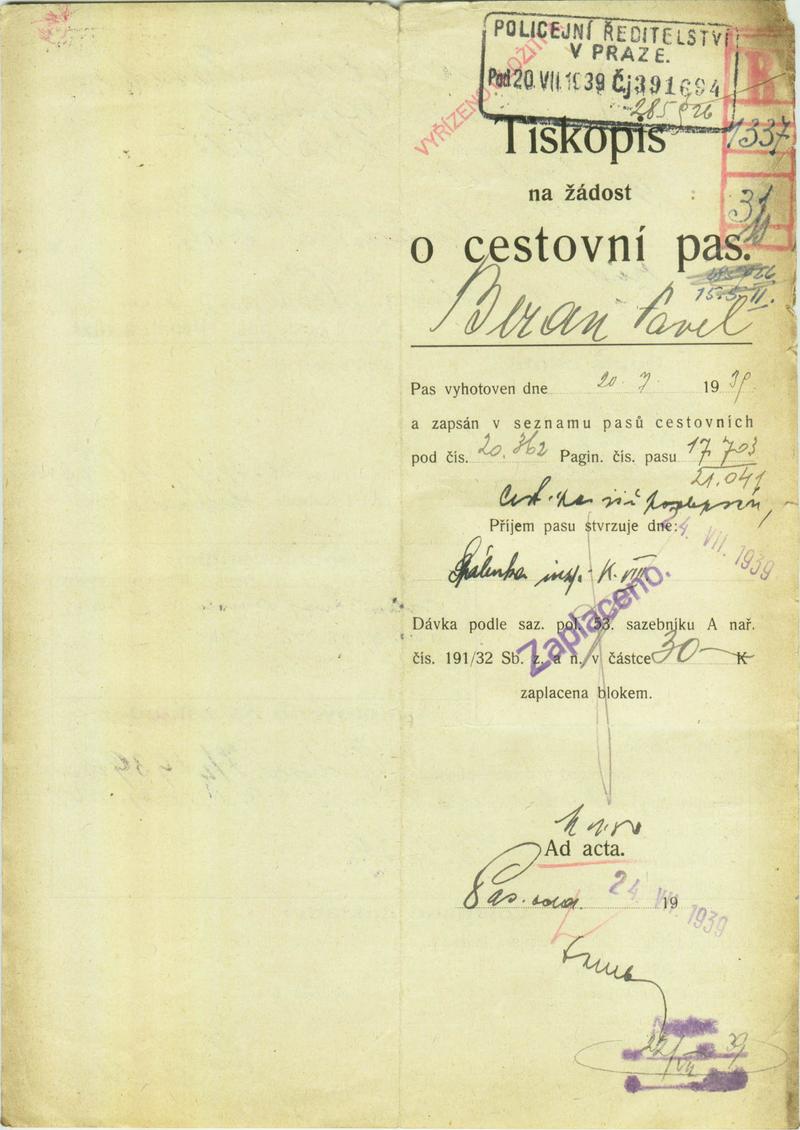 POLICEJNÍ ŘEDITELSTVÍ
V PRAZE.
Pod 20. VII. 1939 Čj 391694
285926
VYŘÍZENO
B
1337
31
Tiskopis
na žádost
o cestovní pas.
15.5. II.
Beran Pavel
Pas vyhotoven dne 20. 7. 1939
a zapsán v seznamu pasů cestovních
pod čís. 20.362 Pagin. čís. pasu 17703
21.041
Příjem pasu stvrzuje dne:
24. VII. 1939
insp. K. VIII
Zaplaceno.
Dávka podle saz. pol. 53. sazebníku A nař.
čís. 191/32 Sb. z. a n. v částce 30 K
zaplacena blokem.
Ad acta.
24. VII. 1939
19
22/VII 39